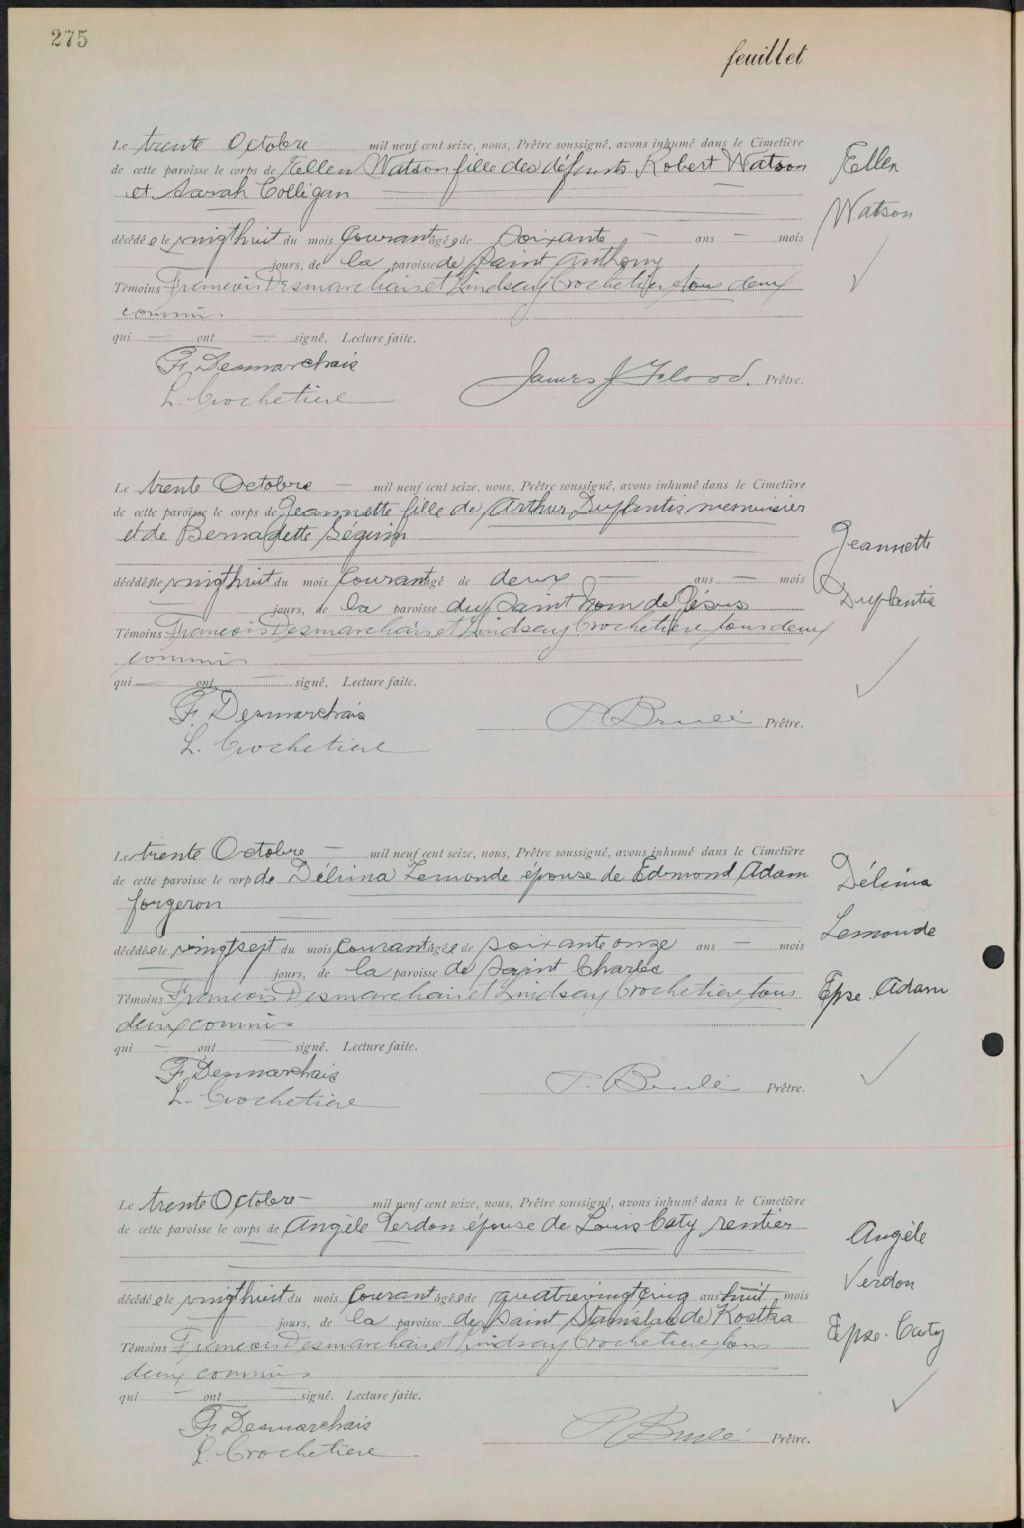 275
feuillet
Le trente Octobre mil neuf cent seize, nous, Prêtre soussigné, avons inhumé dans le Cimetière
de cette paroisse le corps de Ellen Watson fille des défunts Robert Watson
et Sarah Colligan
décédée le vingthuit du mois Courant âgée de soixante — ans — mois
jours, de la paroisse de Saint Anthony
Témoins Francois Desmarchais et Lindsay Crochetiere tous deux
commis
qui — ont — signé. Lecture faite.
F. Desmarchais
L. Crochetiere
James J Flood. Prêtre.
Ellen
Watson
Le trente Octobre — mil neuf cent seize, nous, Prêtre soussigné, avons inhumé dans le Cimetière
de cette paroisse le corps de Jeannette fille de Arthur Duplantis menuisier
et de Bernadette Séguin
décédée le vingthuit du mois Courant âgé de deux — ans — mois
jours, de la paroisse du Saint Nom de Jésus
Témoins Francois Desmarchais et Lindsay Crochetiere tous deux
commis
qui — ont — signé. Lecture faite.
F. Desmarchais
L. Crochetiere
P. Brulé Prêtre.
Jeannette
Duplantis
Le trente Octobre — mil neuf cent seize, nous, Prêtre soussigné, avons inhumé dans le Cimetière
de cette paroisse le corp de Délima Lemonde épouse de Edmond Adam
forgeron
décédée le vingtsept du mois Courant âgée de soixante onze ans — mois
— jours, de la paroisse de Saint Charles
Témoins Francois Desmarchais et Lindsay Crochetiere tous
deux commis
qui — ont — signé. Lecture faite.
F. Desmarchais
L. Crochetiere
P. Brulé Prêtre.
Délima
Lemonde
Epse. Adam
Le trente Octobre — mil neuf cent seize, nous, Prêtre soussigné, avons inhumé dans le Cimetière
de cette paroisse le corps de Angèle Verdon épouse de Louis Caty rentier
décédée le vingthuit du mois Courant âgée de quatrevingtcinq ans huit mois
— jours, de la paroisse de Saint Stanislas de Kostka
Témoins Francois Desmarchais et Lindsay Crochetiere tous
deux commis
qui — ont — signé. Lecture faite.
F. Desmarchais
L. Crochetiere
P. Brulé Prêtre.
Angèle
Verdon
Epse. Caty